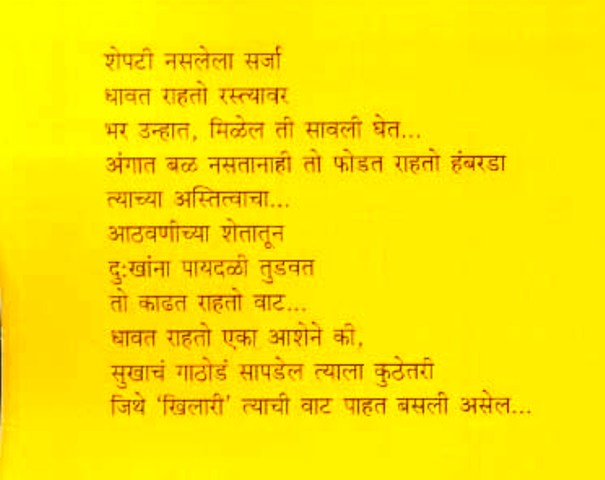 शेपटी नसलेला सर्जा
धावत राहतो रस्त्यावर
भर उन्हात, मिळेल ती सावली घेत...
अंगात बळ नसतानाही तो फोडत राहतो हंबरडा
त्याच्या अस्तित्वाचा...
आठवणीच्या शेतातून
दुःखांना पायदळी तुडवत
तो काढत राहतो वाट...
धावत राहतो एका आशेने की,
सुखाचं गाठोडं सापडेल त्याला कुठेतरी
जिथे 'खिलारी' त्याची वाट पाहत बसली असेल...